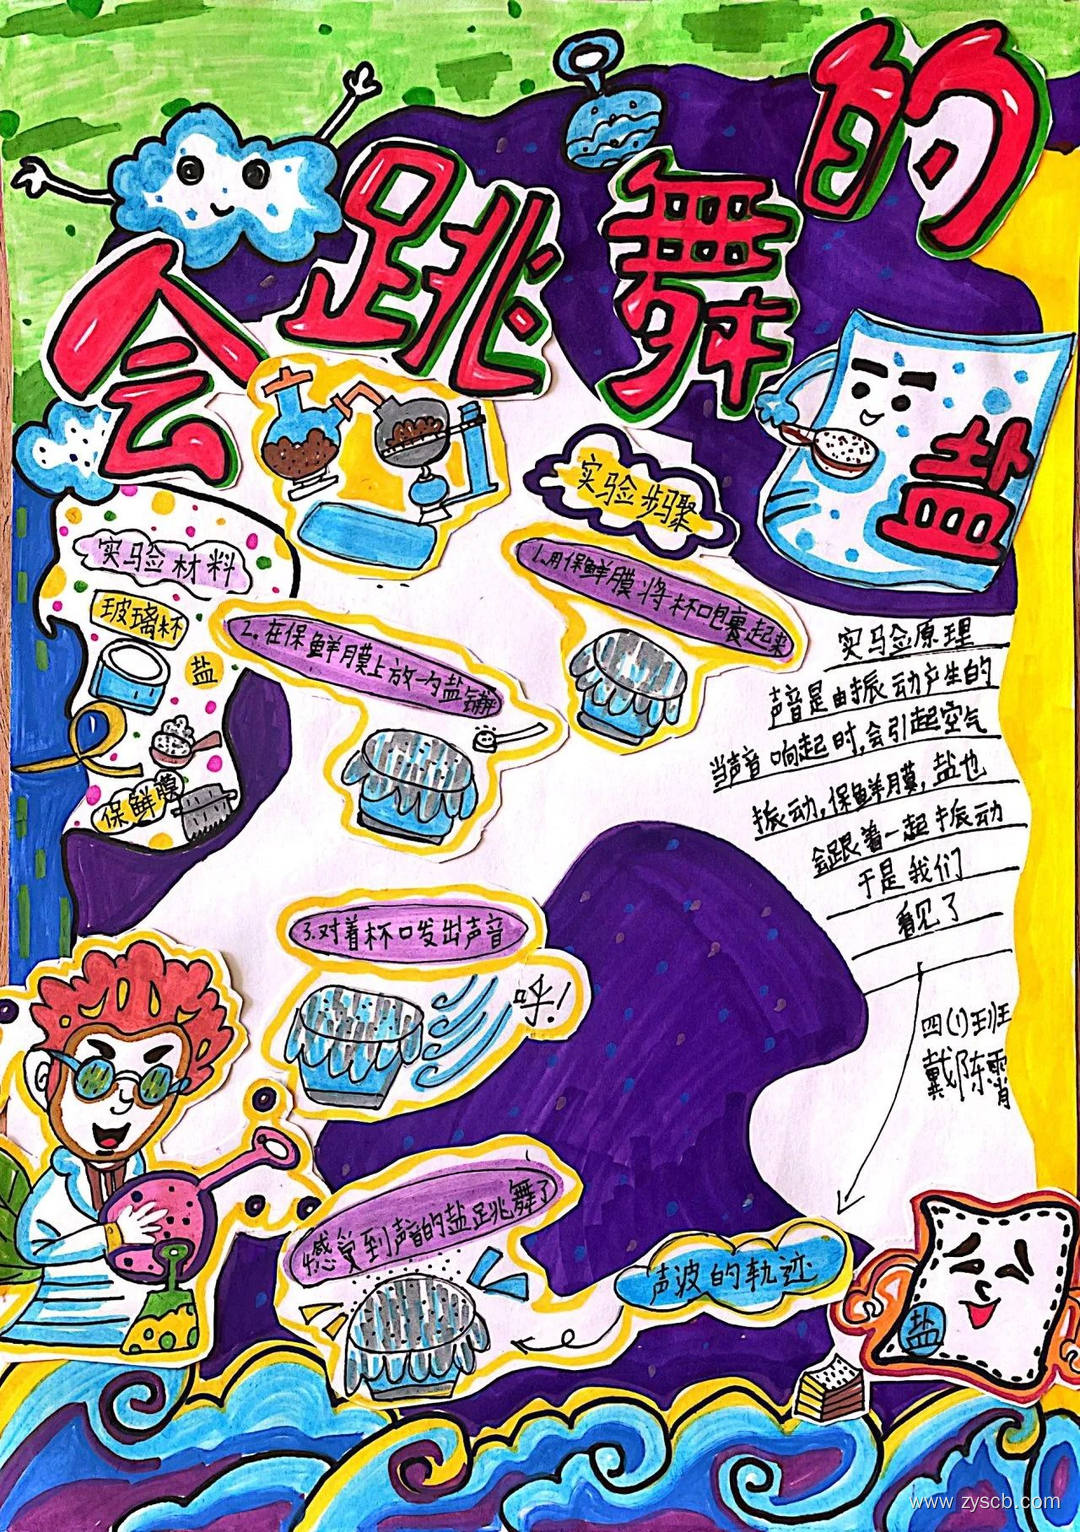 会跳舞的
盐
实验材料
玻璃杯
盐
保鲜膜
实验步骤
1.用保鲜膜将杯口包裹起来
2.在保鲜膜上放一勺盐铺
3.对着杯口发出声音
呼!
感觉到声音的盐跳舞了
实验原理
声音是由振动产生的
当声音响起时,会引起空气
振动,保鲜膜,盐也
会跟着一起振动
于是我们
看见了
声波的轨迹
四(1)班
戴陈霄
盐
www.zyscb.com